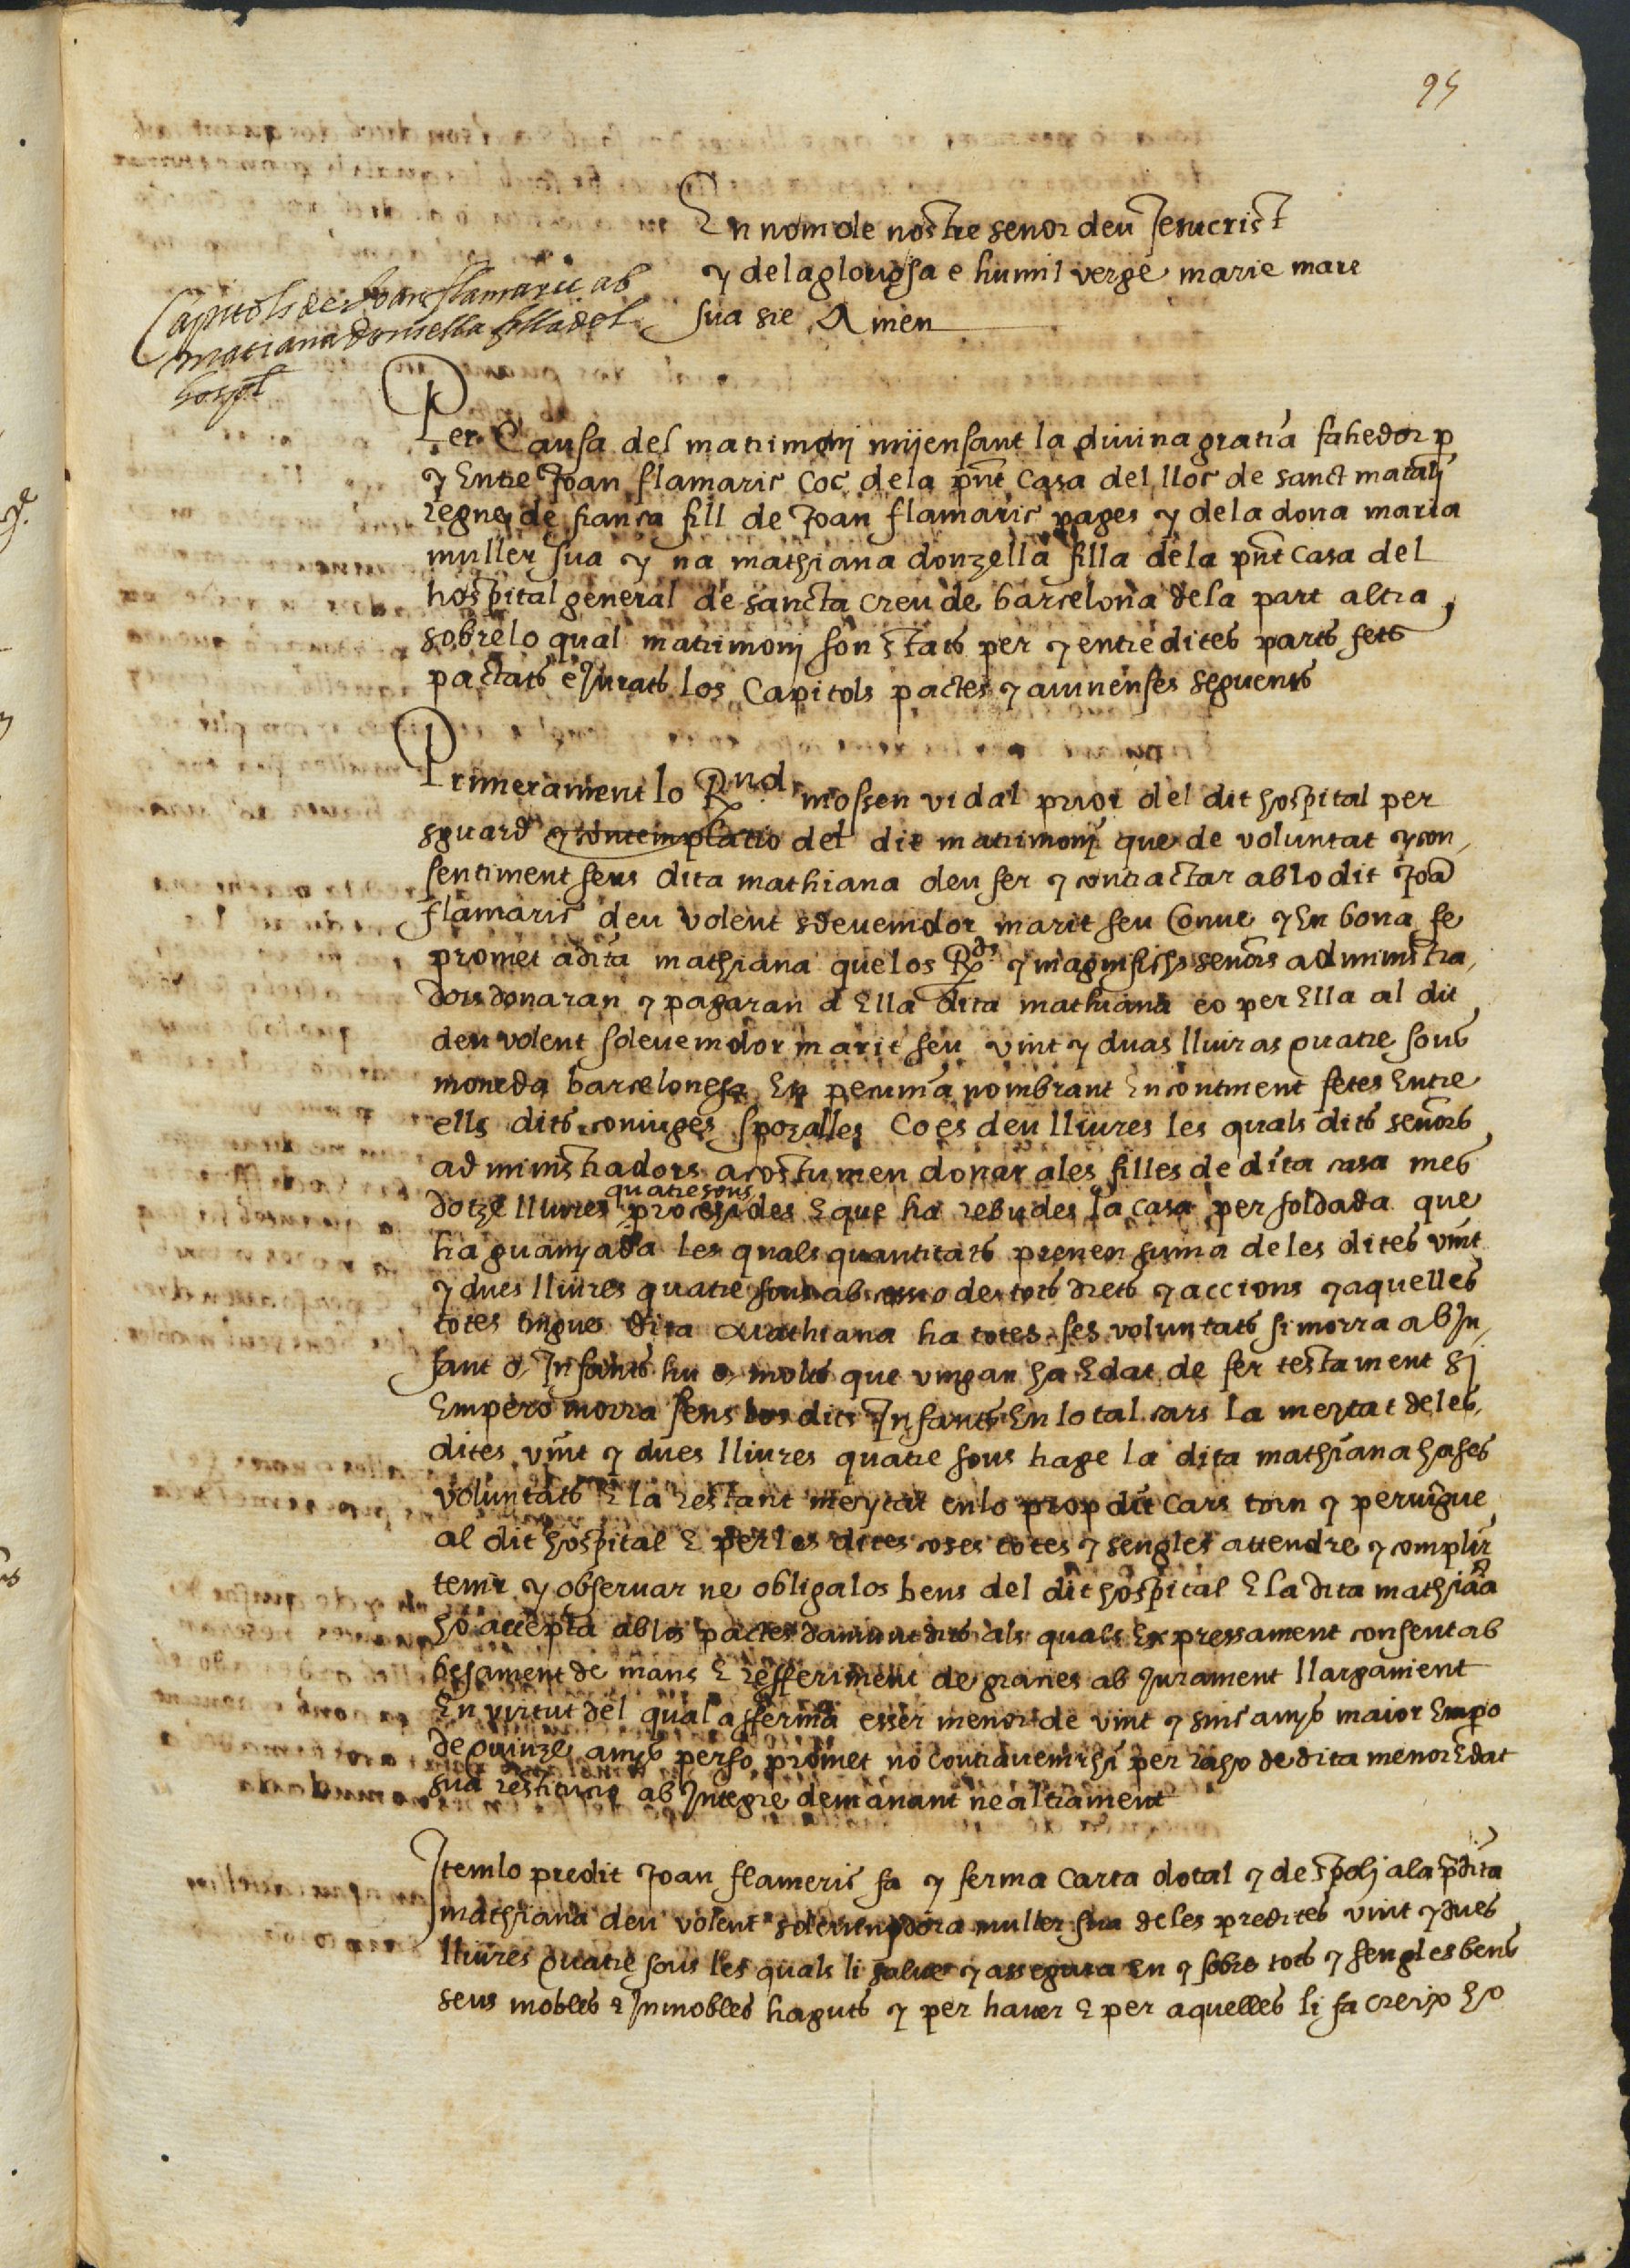 95
En nom de nostre senor deu Jesucrist
y dela gloriosa e humil verge marie mare
sua sie Amen
Capitols de Joan flamaric ab
matiana donsella filla del
hospl
Per Causa del matrimonj mijensant la divina gratia fahedor p
y Entre Joan flamaric coc dela pnt casa del lloc de sanct
regne de fransa fill de Joan flamaric pages y dela dona maria
muller sua y na mathiana donzella filla dela pnt casa del
hospital general de sancta creu de barcelona dela part altra,
sobre lo qual matrimonj son stats per y entre dites parts fets
pactats e Jurats los Capitols pactes y avinenses seguents
Primerament lo Rnd mossen vidal prior del dit hospital per
sguard y contemplatio del dit matrimonj que de voluntat y con,
sentiment seus dita mathiana deu fer y contractar ab lo dit Joā
flamaric deu volent sdevenidor marit seu Conve y En bona fe
promet a dita mathiana que los Rds y magnifichs senors administra,
dors donaran y pagaran a Ella dita mathiana eo per Ella al dit
deu volent sdevenidor marit seu vint y duas lliuras quatre sous
moneda barcelonesa En pecunia nombrant Encontinent fetes Entre
ells dits coniuges spozalles Co es deu lliures les quals dits senors
administradors acostumen donar ales filles de dita casa mes
dotze lliures quatre sous procehides e que ha rebudes la casa per soldada que
ha guanyada les quals quantitats prenen suma de les dites vint
y dues lliures quatre sous ab cessio de tots drets y accions y aquelles
totes tingue dita Mathiana ha totes ses voluntats si morra ab In,
fant o Infants hu o molts que vingan ha Edat de fer testament Si
Empero morra sens los dits Infants En lo tal cars la meytat de les
dites vint y dues lliures quatre sous hage la dita mathiana ha ses
voluntats E la restant meytat en lo prop dit cars torn y pervingue
al dit hospital E per les dites coses totes y sengles attendre y complir
tenir y observar ne obliga los bens del dit hospital E la dita mathiāa
ho accepta ab los pactes damunt dits als quals Expressament consent ab
besament de mans E refferiment de gracies ab Jurament llargament
En virtut del qual afferma esser menor de vint y sinc anys maior Empo
de quinze anys perso promet no contravenir hi per raho de dita menor Edat
sua restitutio ab Integre demanant ne altrament
Item lo predit Joan flameric fa y ferma Carta dotal y de spolj ala pdita
mathiana deu volent sdevenidora muller sua de les predites vint y dues
lliures quatre sous les quals li salve y assegura en y sobre tots y sengles bens
seus mobles e Inmobles haguts y per haver E per aquelles li fa creix ho